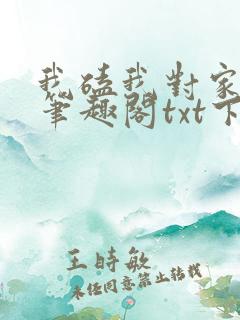 我磕我对家
筆趣閣txt下
王時敏
未经同意禁止转载